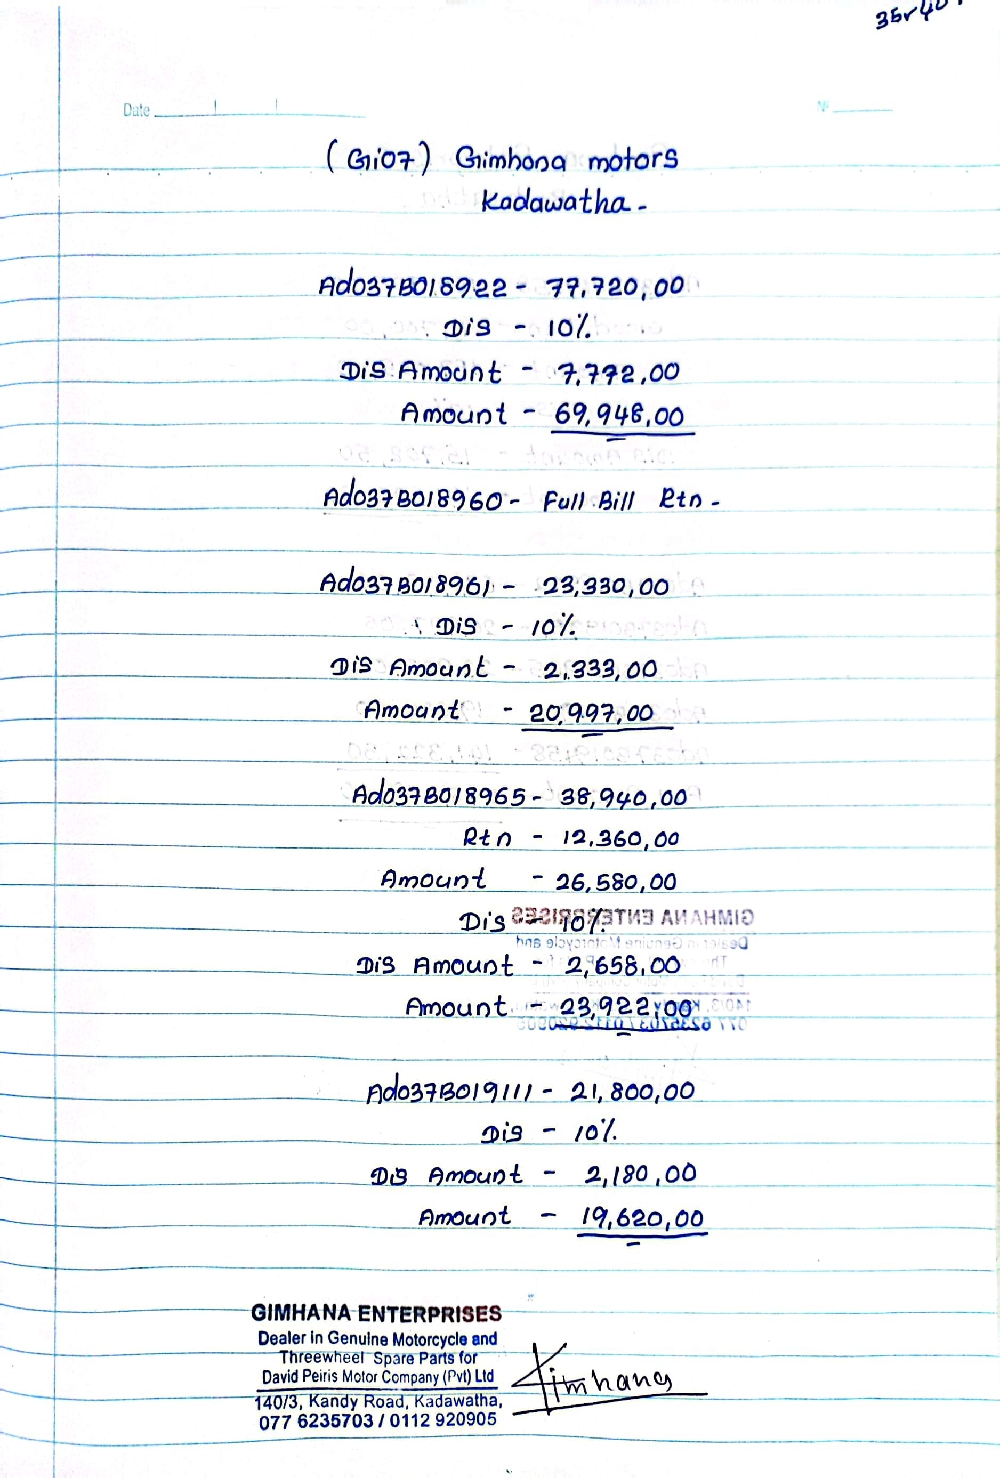 Date
Nº
(Gi07) Gimhana motors
Kadawatha -
Ad037B018922 - 77,720,00
Dis - 10%
Dis Amount - 7,772,00
Amount - 69,948,00
Ad037B018960 - Full Bill Rtn -
Ad037B018961 - 23,330,00
Dis - 10%
Dis Amount - 2,333,00
Amount - 20,997,00
Ad037B018965 - 38,940,00
Rtn - 12,360,00
Amount - 26,580,00
Dis - 10%
Dis Amount - 2,658,00
Amount - 23,922,00
Ad037B019111 - 21,800,00
Dis - 10%
Dis Amount - 2,180,00
Amount - 19,620,00
GIMHANA ENTERPRISES
Dealer in Genuine Motorcycle and
Threewheel Spare Parts for
David Peiris Motor Company (Pvt) Ltd
140/3, Kandy Road, Kadawatha,
077 6235703 / 0112 920905
Gimhana